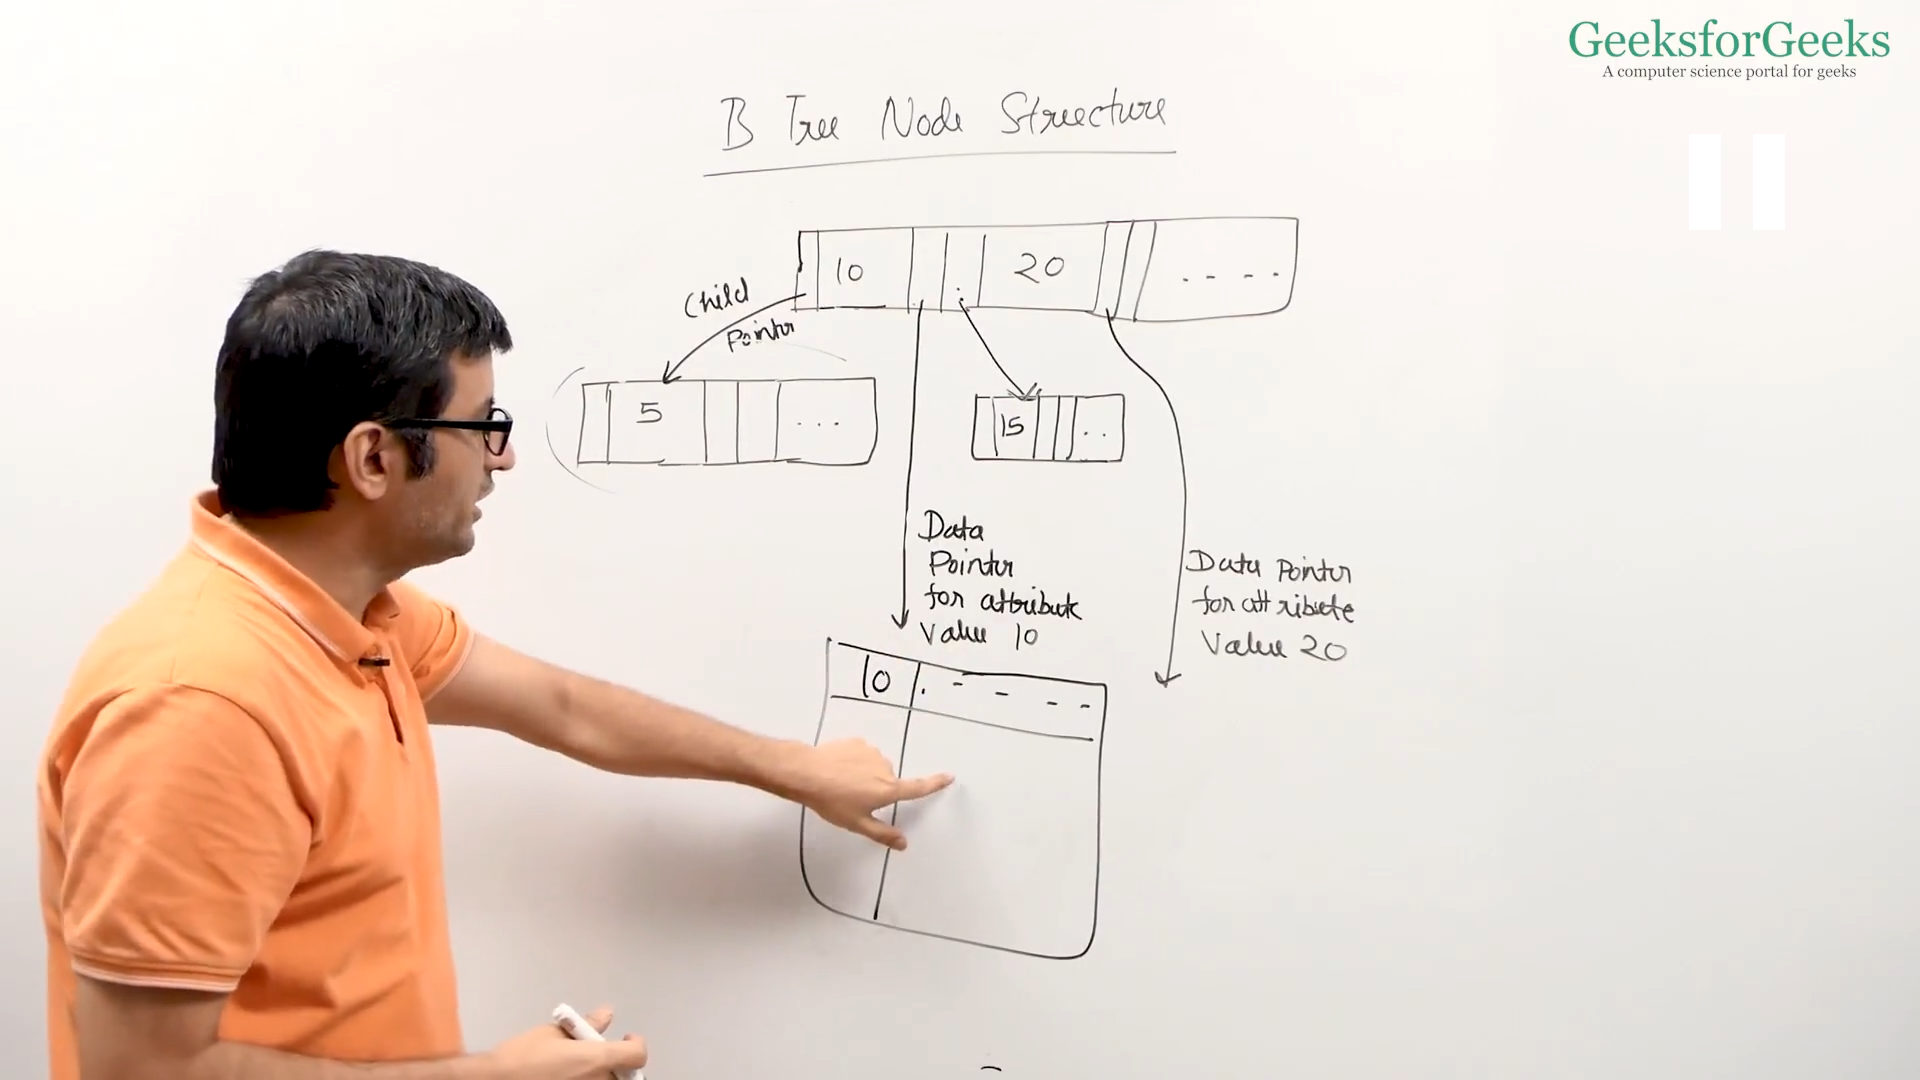 GeeksforGeeks
A computer science portal for geeks
B Tree Node Structure
10 . 20 - - - -
Child
Pointer
5 ...
15 ..
Data
Pointer
for attribute
Value 10
Data Pointer
for attribute
Value 20
10 . - - - -